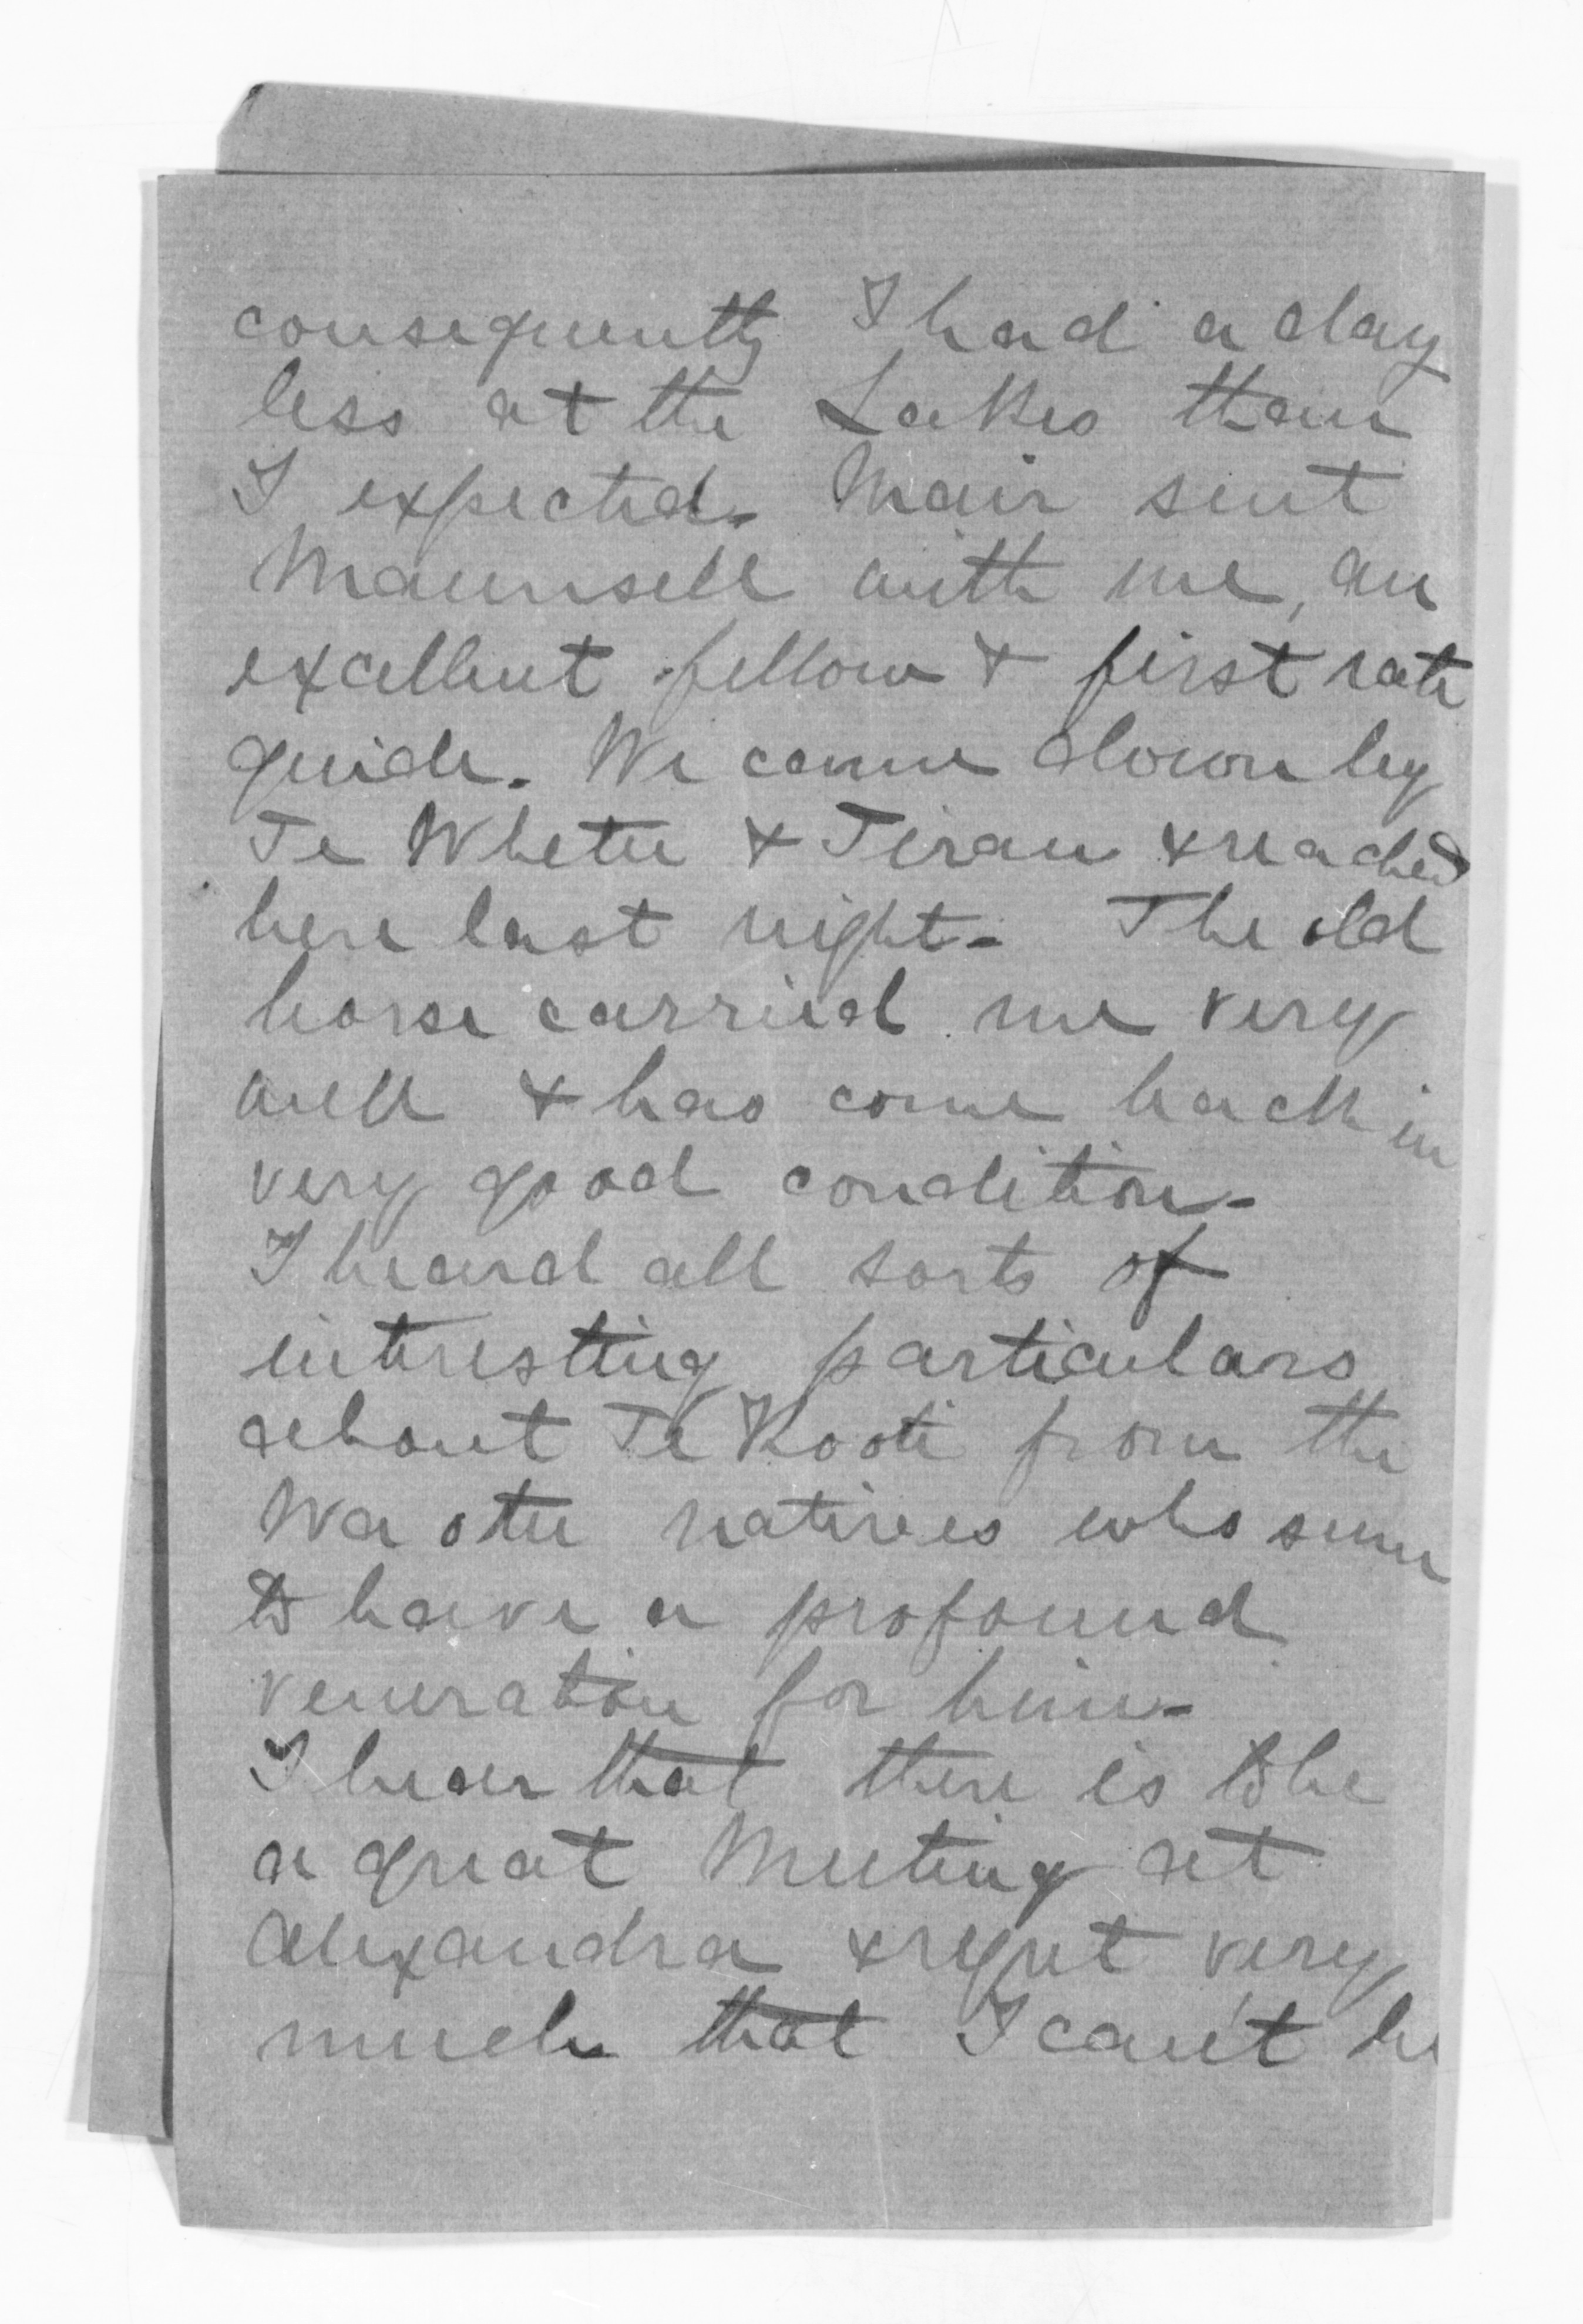 consequently I had a day
less at the Lakes than
I expected. Mair sent
Maunsell with me, an
excellent fellow & first rate
guide. We came down by
Te Whetu & Tirau & reached
here last night - The old
horse carried me very
well & has come back in
very good condition -
I heard all sorts of
interesting particulars
about Te Kooti from the
Waotu natives who seem
to have a profound
veneration for him -
I hear that there is to be
a great Meeting at
Alexandra & regret very
much that I can't be